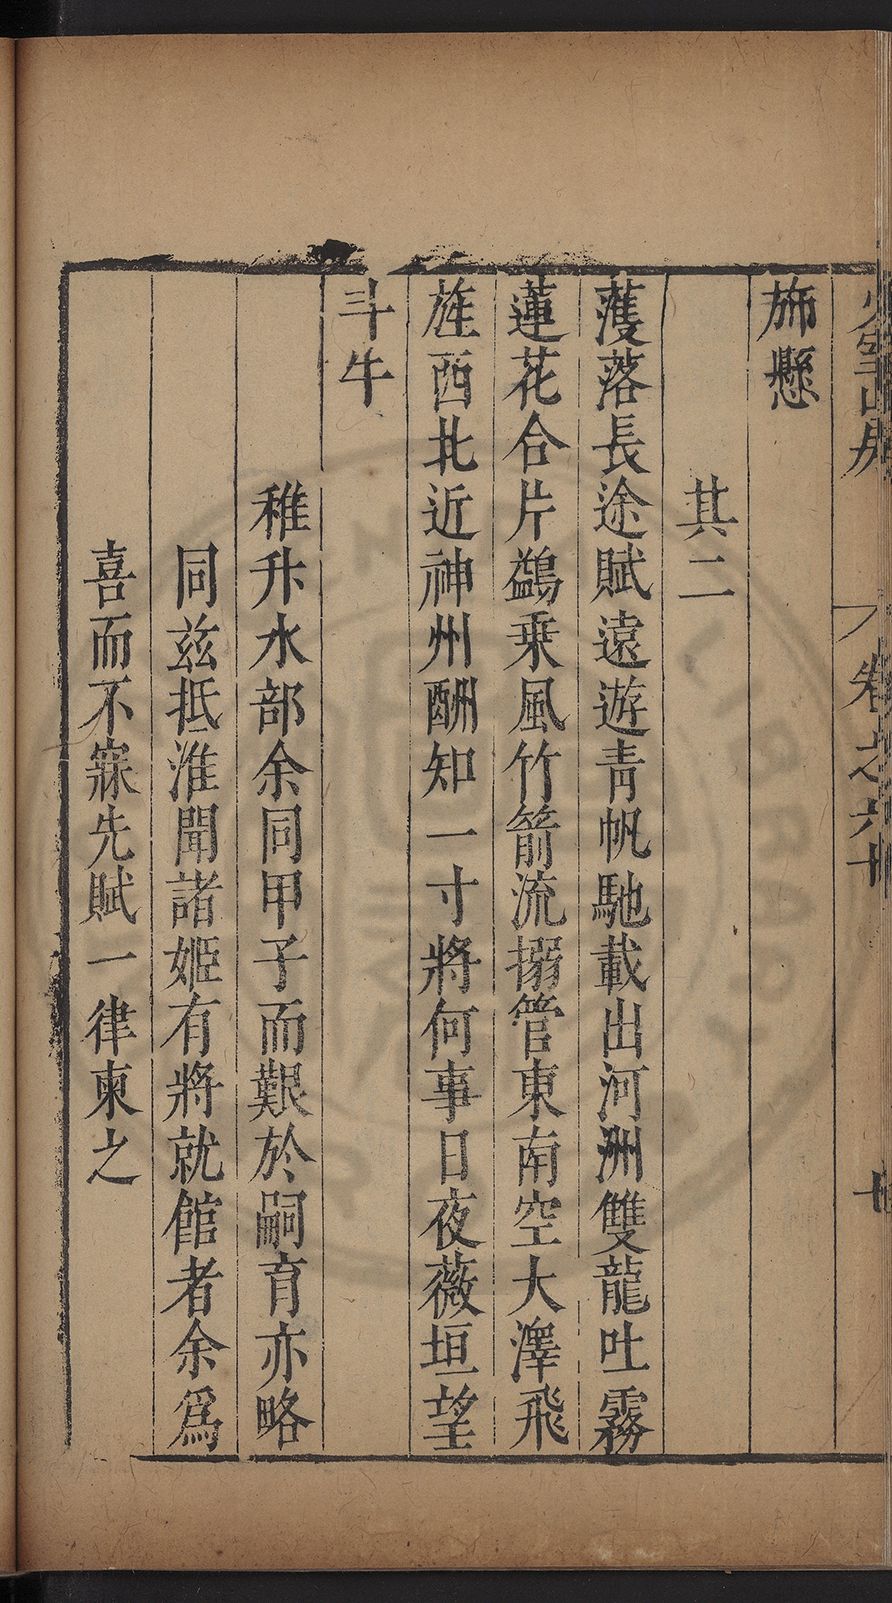 少室山房
卷之六十
十
旆懸
其二
蒦落長途賦遠遊青帆馳載出河洲雙龍吐霧
蓮花合片鷁乗風竹箭流搦管東南空大澤飛
旌西北近神州酬知一寸將何事日夜薇垣望
斗牛
稚升水部余同甲子而艱於嗣育亦略
同茲抵淮聞諸姬有將就館者余爲
喜而不寐先賦一律柬之